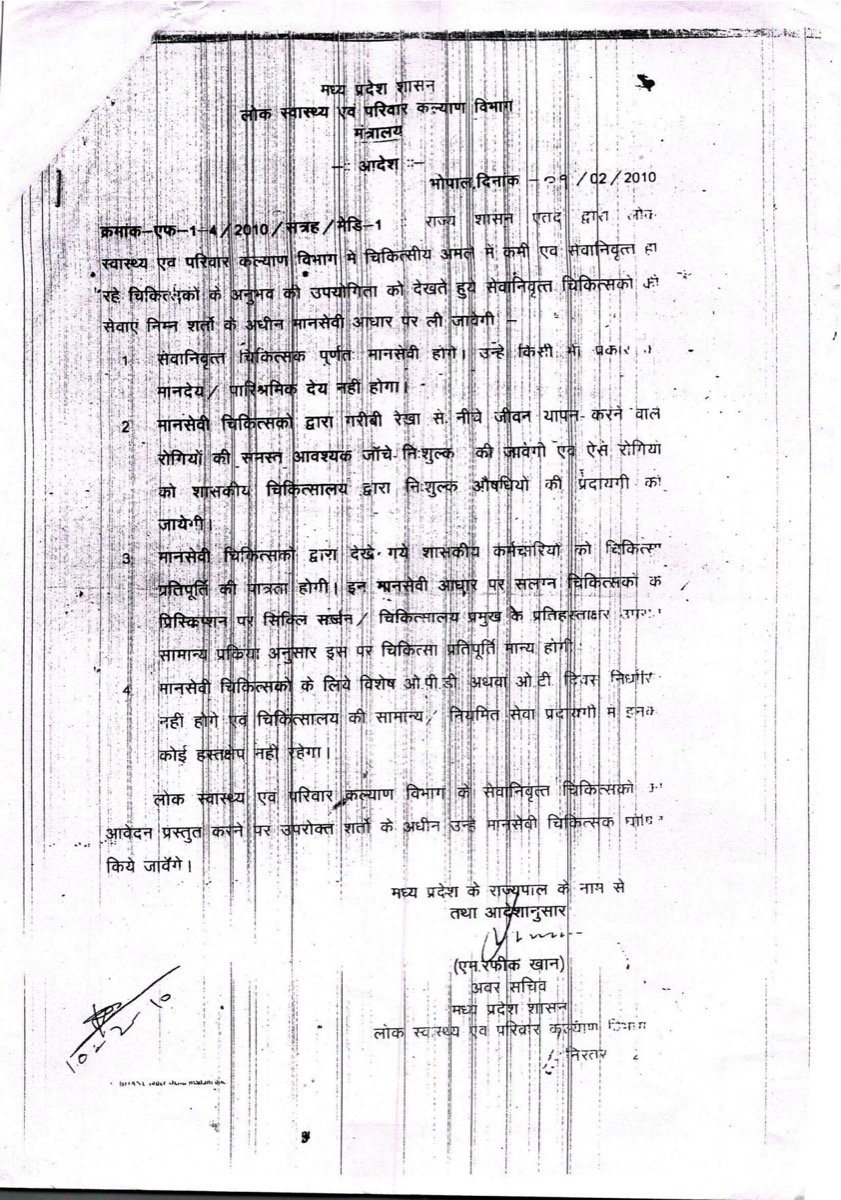 मध्य प्रदेश शासन
लोक स्वास्थ्य एवं परिवार कल्याण विभाग
मंत्रालय
-:: आदेश ::-
भोपाल,दिनांक - /02/2010
क्रमांक-एफ-1-4/2010/सत्रह/मेडि-1 :: राज्य शासन एतद् द्वारा लोक
स्वास्थ्य एवं परिवार कल्याण विभाग में चिकित्सीय अमले में कमी एवं सेवानिवृत्त हो
रहे चिकित्सकों के अनुभव की उपयोगिता को देखते हुये सेवानिवृत्त चिकित्सकों की
सेवाएं निम्न शर्तो के अधीन मानसेवी आधार पर ली जावेगी :-
1. सेवानिवृत्त चिकित्सक पूर्णतः मानसेवी होंगे। उन्हें किसी भी प्रकार
मानदेय/ पारिश्रमिक देय नहीं होगा।
2. मानसेवी चिकित्सकों द्वारा गरीबी रेखा से नीचे जीवन यापन करने वाले
रोगियों की समस्त आवश्यक जॉंचे निःशुल्क की जावेगी एवं ऐसे रोगियों
को शासकीय चिकित्सालय द्वारा निःशुल्क औषधियों की प्रदायगी की
जायेगी।
3. मानसेवी चिकित्सकों द्वारा देखे गये शासकीय कर्मचारियों को चिकित्सा
प्रतिपूर्ति की पात्रता होगी। इन मानसेवी आधार पर सलग्न चिकित्सकों के
प्रिस्क्रिप्शन पर सिविल सर्जन/ चिकित्सालय प्रमुख के प्रतिहस्ताक्षर उपरांत
सामान्य प्रक्रिया अनुसार इस पर चिकित्सा प्रतिपूर्ति मान्य होगी।
4. मानसेवी चिकित्सकों के लिये विशेष ओ.पी.डी अथवा ओ.टी दिवस निर्धारित
नहीं होगे एवं चिकित्सालय की सामान्य/ नियमित सेवा प्रदायगी में इनका
कोई हस्तक्षेप नहीं रहेगा।
लोक स्वास्थ्य एवं परिवार कल्याण विभाग के सेवानिवृत्त चिकित्सकों
आवेदन प्रस्तुत करने पर उपरोक्त शर्तो के अधीन उन्हें मानसेवी चिकित्सक
किये जावेंगे।
मध्य प्रदेश के राज्यपाल के नाम से
तथा आदेशानुसार
(एम.रफीक खान)
अवर सचिव
मध्य प्रदेश शासन
लोक स्वास्थ्य एवं परिवार कल्याण विभाग
निरंतर
10-2-10